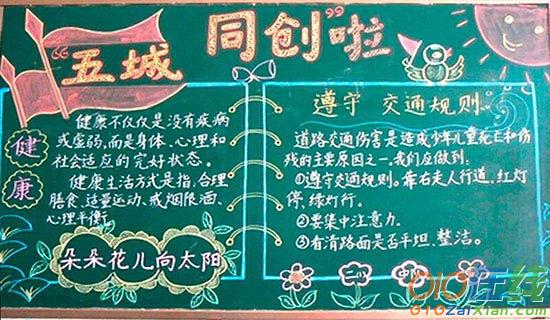 “五城同创”啦
健康
健康不仅仅是没有疾病
或虚弱,而是身体、心理和
社会适应的完好状态。
健康生活方式是指,合理
膳食、适量运动、戒烟限酒、
心理平衡。
朵朵花儿向太阳
遵守 交通规则。
道路交通伤害是造成少年儿童死亡和伤
残的主要原因之一,我们应做到:
①遵守交通规则。靠右走人行道,红灯
停,绿灯行。
②要集中注意力.
③看清路面是否平坦、整洁。
二(
中
010在线
010zaixian.com